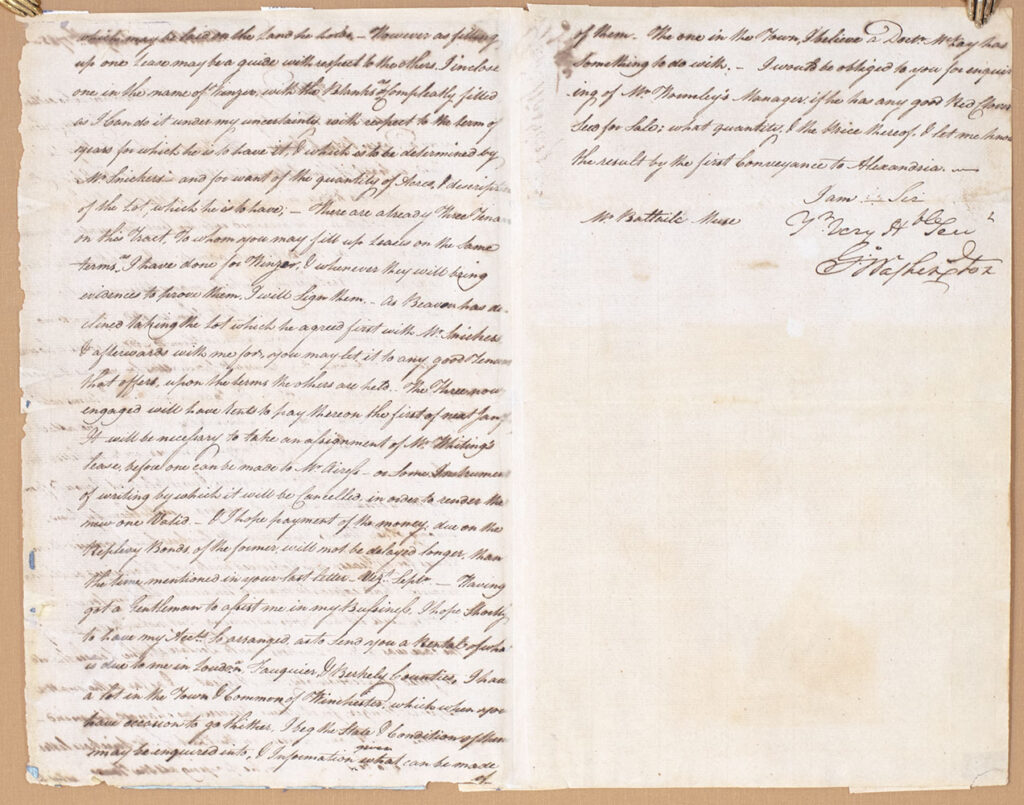 which may be laid on the Land he holds – However as filling
up one Lease may be a guide with respect to the others, I inclose
one in the name of Winzor, with the Blanks as compleatly filled
as I can do it under my uncertainty with respect to the term of
years for which he is to have it, & which is to be determined by
Mr Snickers – and for want of the quantity of Acres, & descrip
of the Lot, which he is to have; – There are already Three Tena
on this Tract, To whom you may fill up Leases on the same
terms as I have done for Winzor, & whenever they will bring
evidences to prove them, I will sign them. – As Beavon has de-
clined taking the Lot which he agreed first with Mr Snickers
& afterwards with me for, you may let it to any good Tenan
that offers, upon the terms the others are held. – The Three now
engaged will have Rents to pay thereon the first of next Jany
It will be necessary to take an assignment of Mr Whiting's
lease, before one can be made to Mr Airess – or some Instrumen
of writing by which it will be Cancelled, in order to render the
new one Valid – & I hope payment of the money, due on the
Replevy Bonds of the former, will not be delayed longer, than
the time mentioned in your last letter. Vizt Septr – Having
got a Gentleman to assist me in my business, I hope shortly
to have my Accts so arranged, as to send you a Rental of wha
is due to me in Loudn Fauquier, & Berkely Counties, I have
a lot in the Town & Common of Winchester, which when you
have occasion to go thither, I beg the State & Condition of them
may be enquired into, & Information given what can be made
of
of them. The one in the Town, I believe a Doctr McKay has
something to do with. – I would be obliged to you for enquir
ing of Mr Wormley's Manager, if he has any good Red clover
Seed for Sale; what quantity, & the Price thereof, & let me know
the result by the first Conveyance to Alexandria. –
I am – Sir
Mr Battaile Muse Yr Very Hble Servt
Go Washington